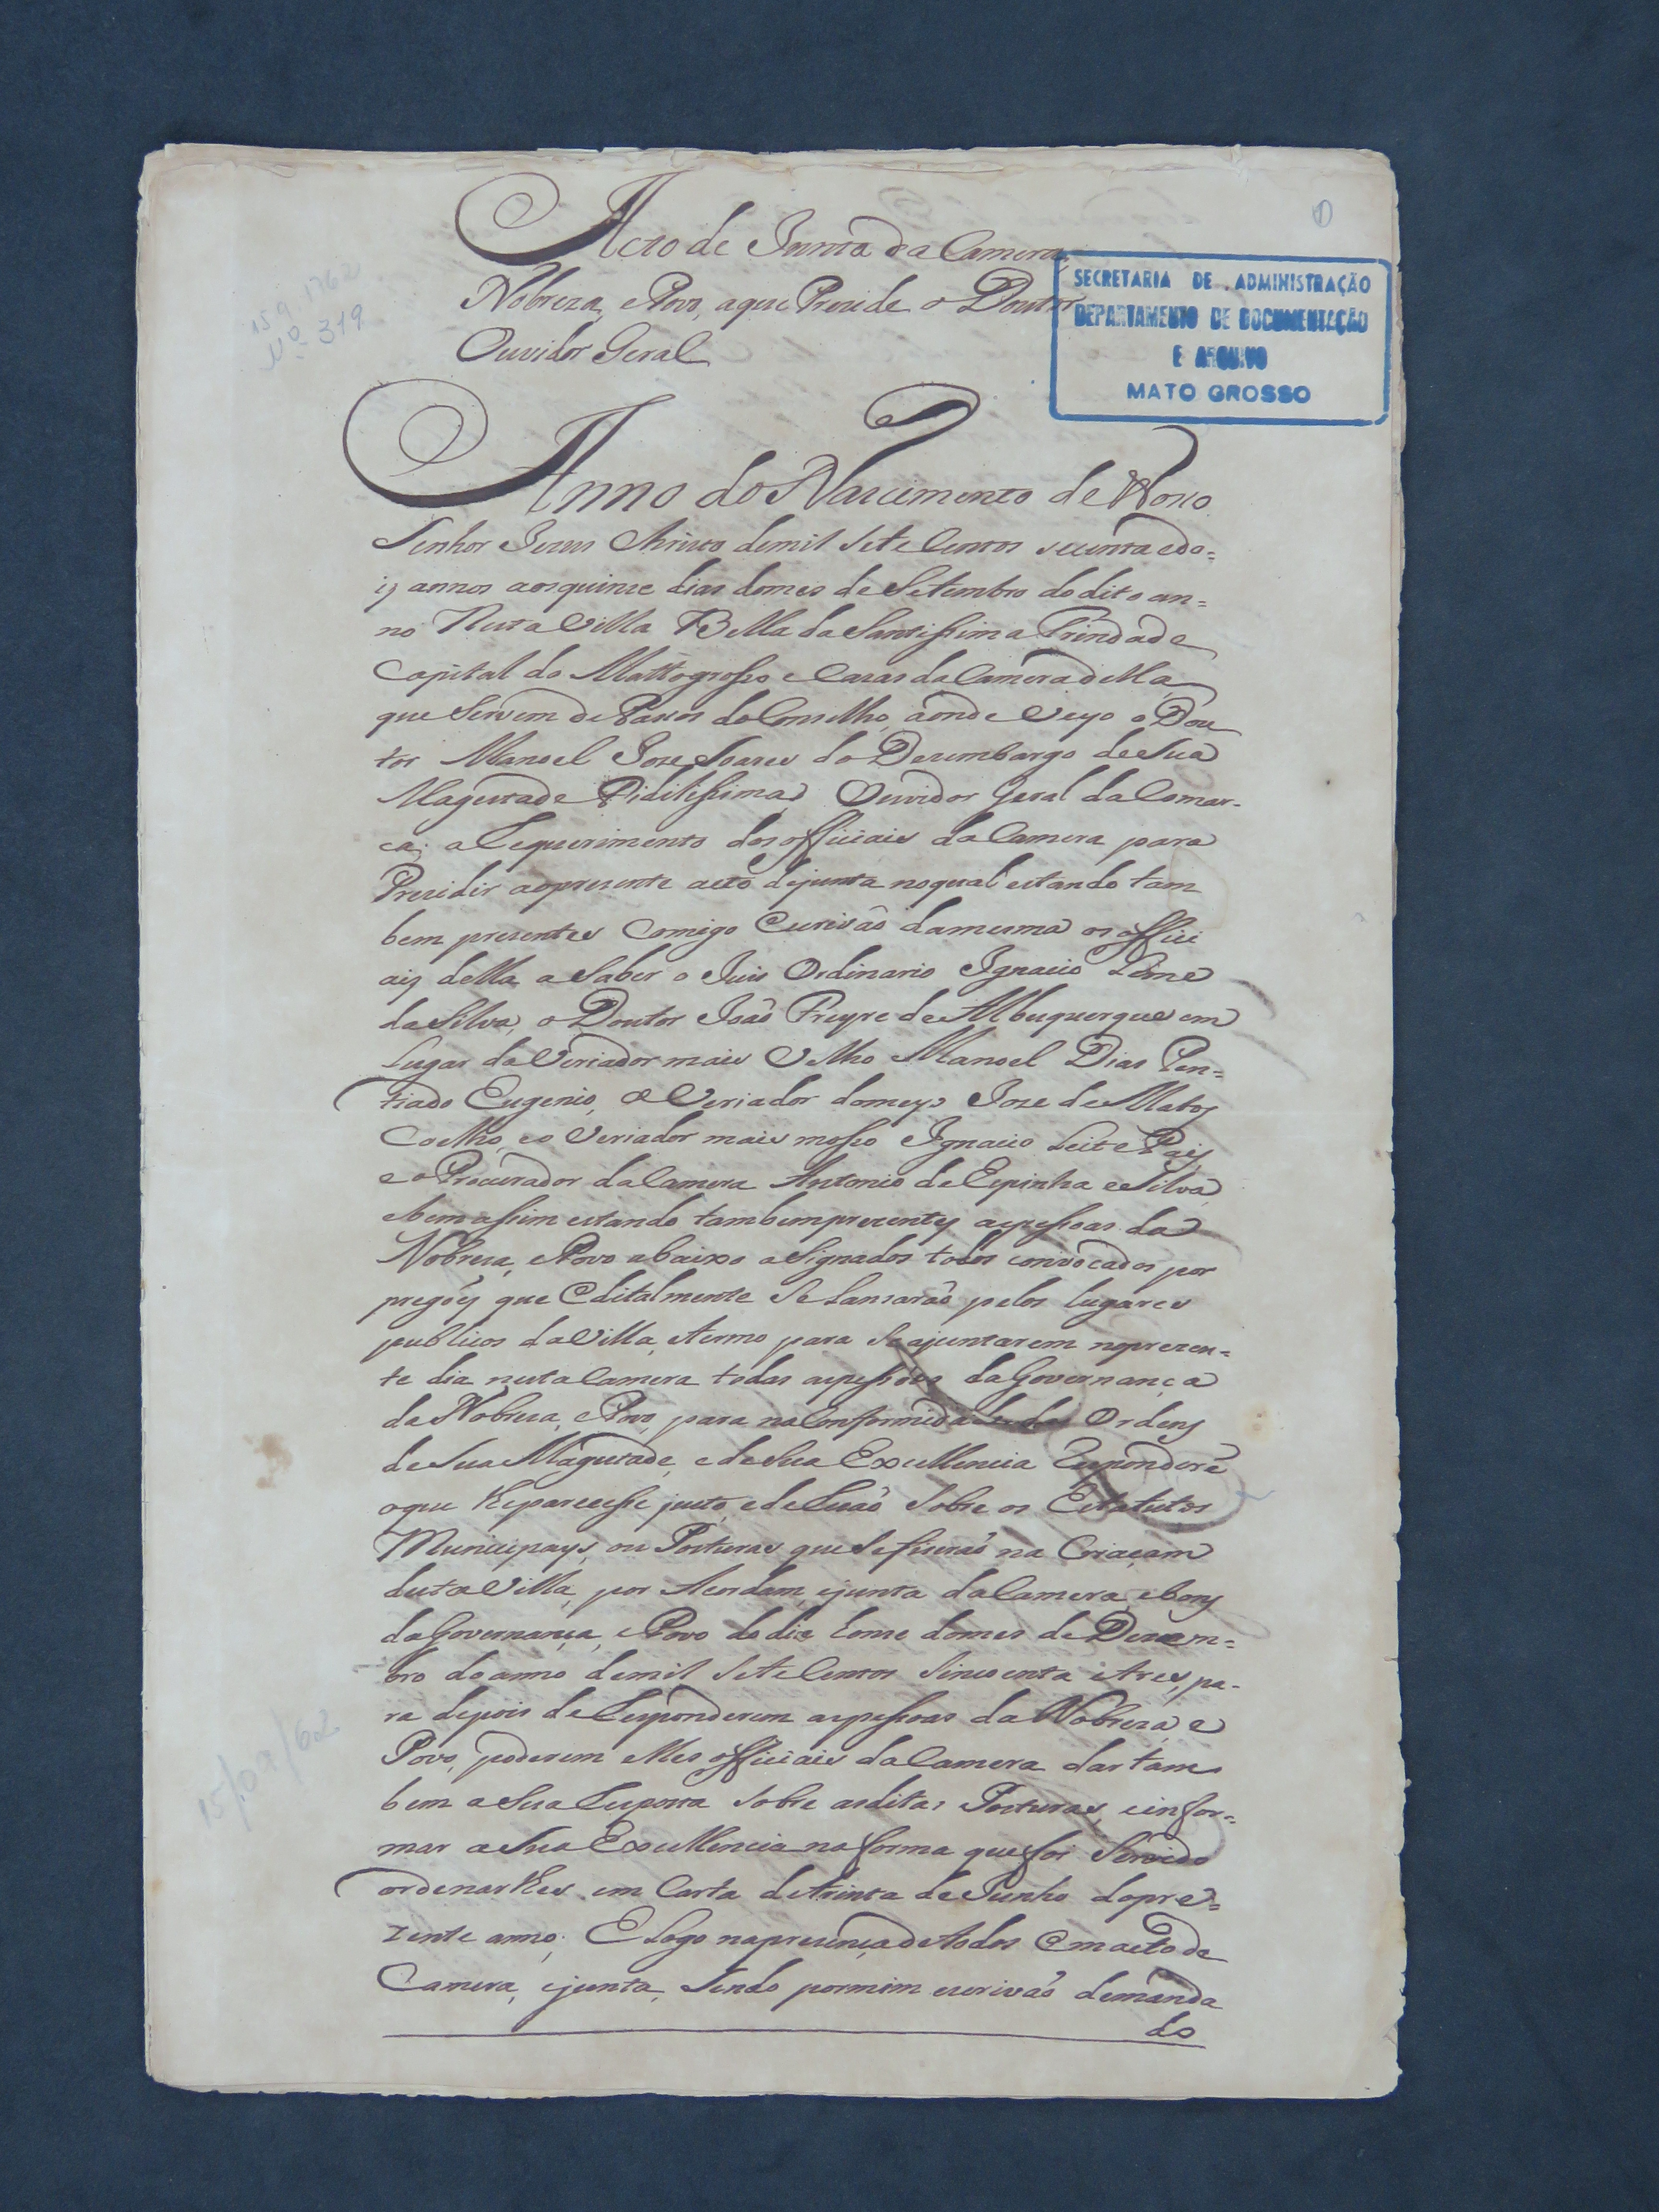 Acto de Junta da Camera,
Nobreza, e Povo, a que Prezide o Doutor
Ouvidor Geral
SECRETARIA DE ADMINISTRAÇÃO
DEPARTAMENTO DE DOCUMENTAÇÃO
E ARQUIVO
MATO GROSSO
15.9.1762
Nº 319
Anno do Nascimento de Nosso
Senhor Jezus Christo de mil Sete Centos secenta e do=
is annos aos quinze dias do mes de Setembro do dito an=
no Nesta Villa Bella da Santissima Trindade
Capital do Mattogrosso e Cazas da Camera della
que Servem de Passos do Conselho, aonde Veyo o Dou
tor Manoel Joze Soares do Dezembargo de Sua
Magestade Fidilissima Ouvidor Geral da Comar-
ca; a Requerimento dos officiais da Camera para
Prezidir ao prezente acto de junta no qual estando tam
bem prezentes Comigo Escrivão da mesma os offici
ais della a Saber o Juis Ordinario Ignacio Leme
da Silva, o Doutor João Freyre de Albuquerque em
Lugar do Veriador mais Velho Manoel Dias Pen=
tiado Eugenio, o Veriador do meyo Joze de Matos
Coelho, e o Veriador mais mosso Ignacio Leite Pais
e o Procurador da Camera Antonio de Espinha e Silva
e bem assim estando tambem prezentes as pessoas da
Nobreza, e Povo abaixo aSignados todos convocados por
pregões que Editalmente Se Lansarão pelos lugares
publicos da Villa, e termo para Se ajuntarem no prezen=
te dia nesta Camera todas as pessoas da Governança
da Nobreza, e Povo, para na Conformidade das Ordens
de Sua Magestade, e de Sua Excellencia Responderẽ
o que lhe parecesse justo, e de Rezão Sobre os Estatutos
Municipays, ou Posturas que Se fizerão na Criaçam
desta Villa, por Acordam, e junta da Camera, e bons
da Governança, e Povo do dia Conse do mes de Dezem=
bro do anno de mil Sete Centos Sincoenta e tres, pa-
ra depois de Responderem as pessoas da Nobreza e
Povo, poderem elles officiais da Camera dar tam
bem a Sua Resposta Sobre as ditas Posturas, e infor=
mar a Sua Excellencia na forma que foi Servido
ordenar lhes em Carta de trinta de Junho do pre=
zente anno; E Logo na prezença de todos Em acto de
Camera, e junta, Sendo por mim escrivão de manda
do
15/09/62